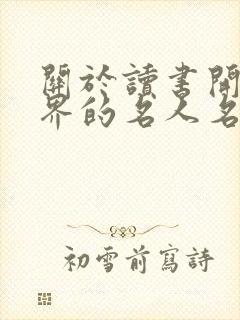 關於讀書開
界的名人名
初雪前寫詩